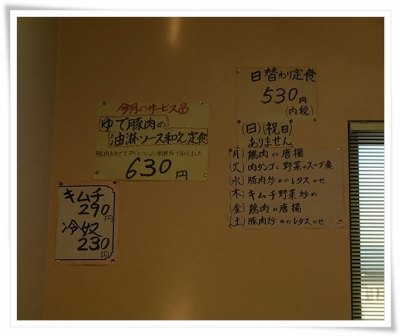 今月のサービス品
ゆで豚肉の
油淋ソース和え定食
630円
キムチ
290円
冷奴
230円
日替わり定食
530円
(内税)
(日)(祝日)
ありません
(月) 鶏肉の唐揚
(火) 肉ダンゴと野菜のスープ煮
(水) 豚肉炒めのレタスのせ
(木) キムチ野菜炒め
(金) 鶏肉の唐揚
(土) 豚肉炒めのレタスのせ